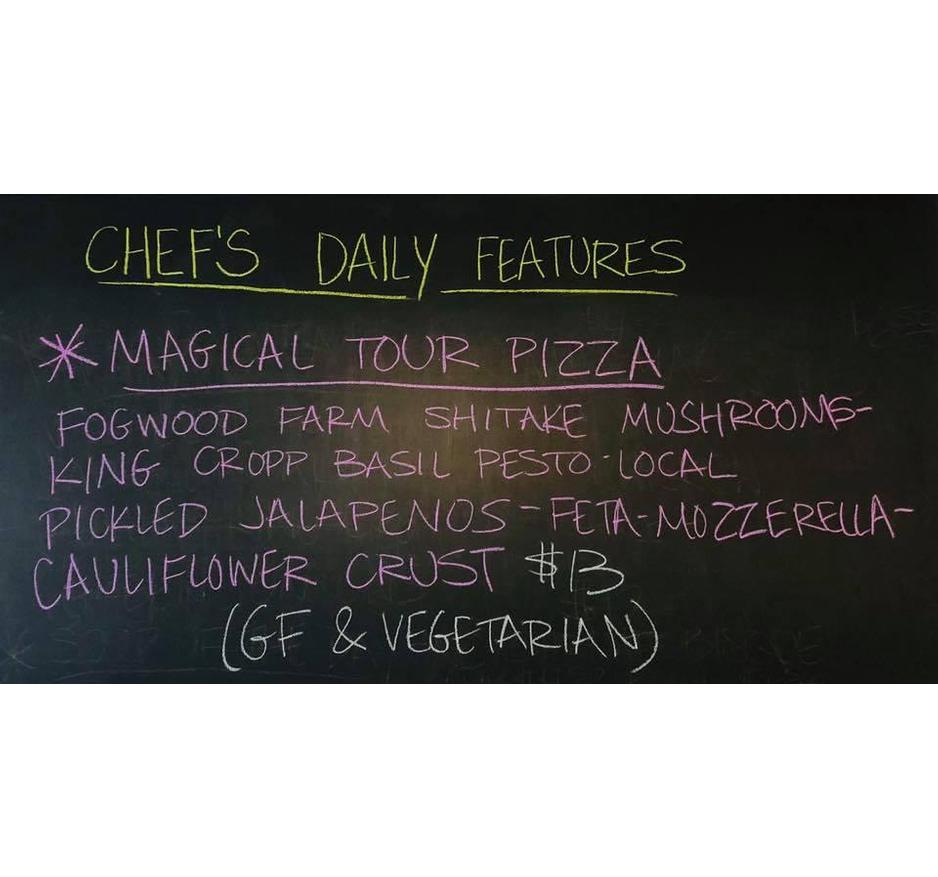 CHEF'S DAILY FEATURES
* MAGICAL TOUR PIZZA
FOGWOOD FARM SHITAKE MUSHROOMS-
KING CROPP BASIL PESTO-LOCAL
PICKLED JALAPENOS-FETA-MOZZERELLA-
CAULIFLOWER CRUST $13
(GF & VEGETARIAN)